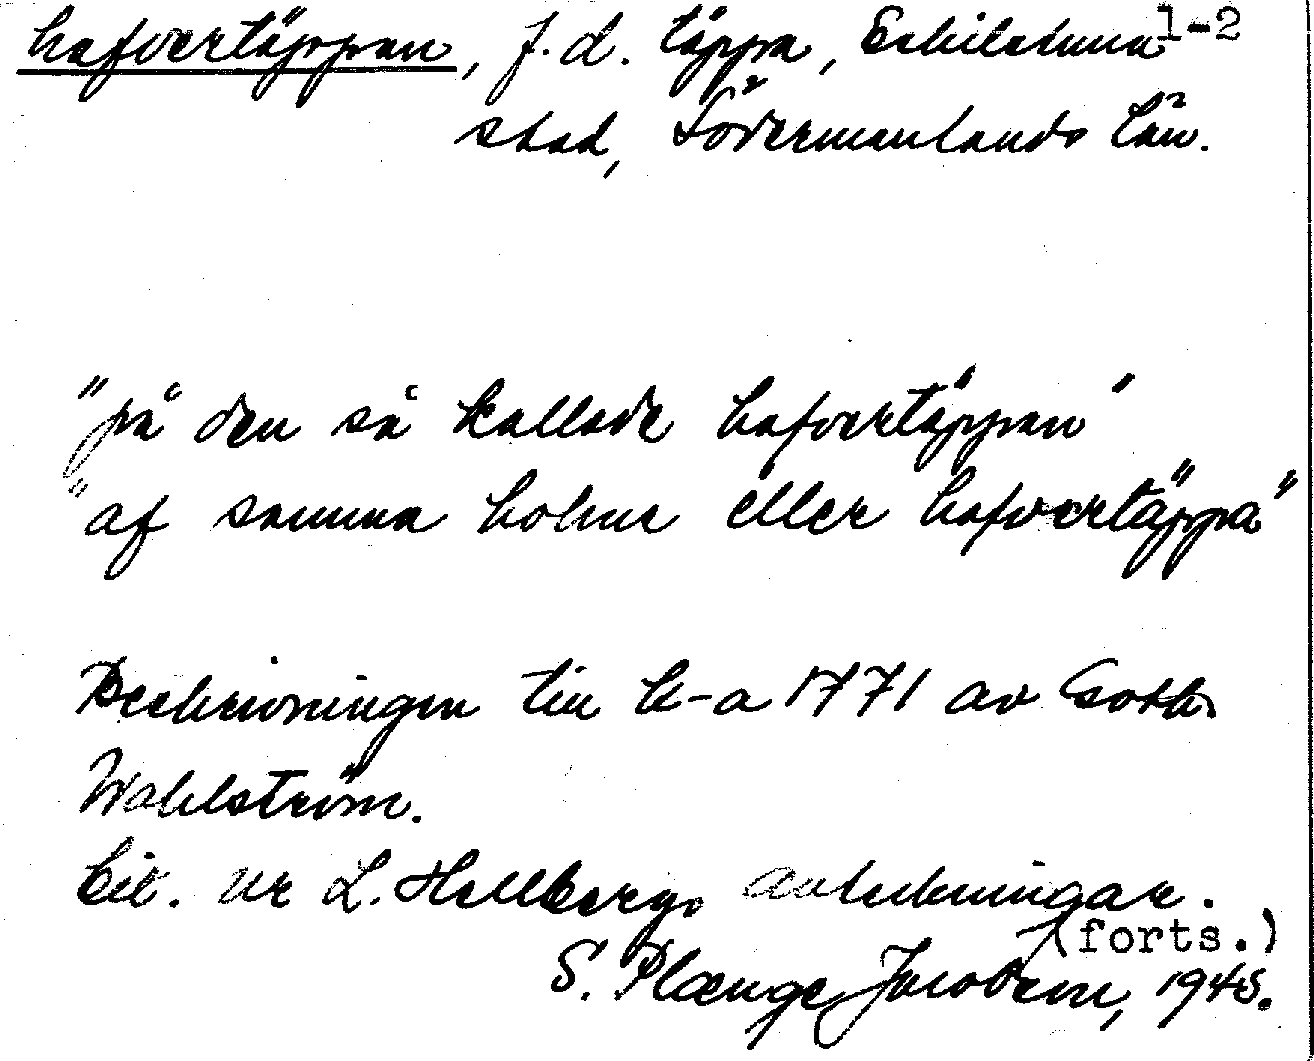 hafvertäppan, f.d. täppa, Eskilstuna 1-2
stad, Södermanlands län.
"på den så kallade hafvertäppan"
"af samma holme eller hafvertäppa"
Beskrivningen till k-a 1771 av Gotth.
Wahlström.
Cit. ur L. Hellbergs anteckningar.
(forts.)
S. Plænge Jacobson, 1948.